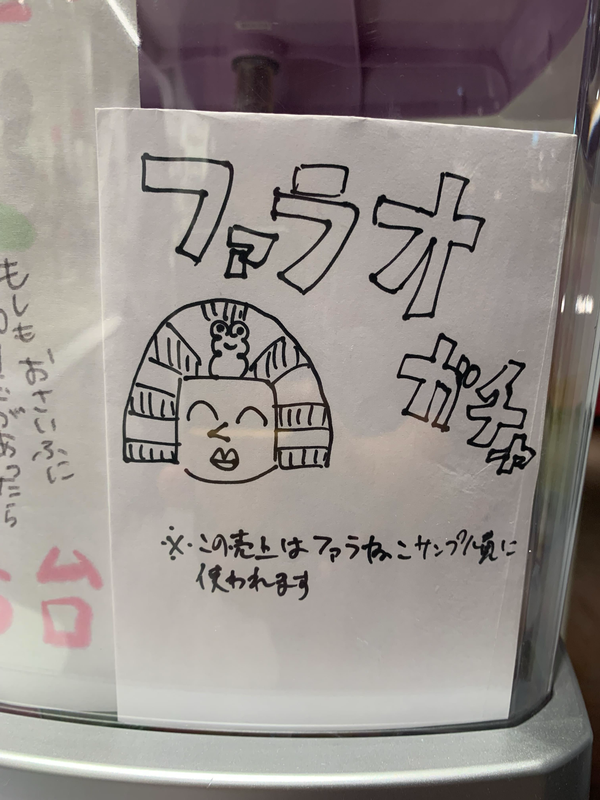 ファラオ
ガチャ
※この売上はファラねこサンプル費に
使われます
もしも おさいふに
があったら
台